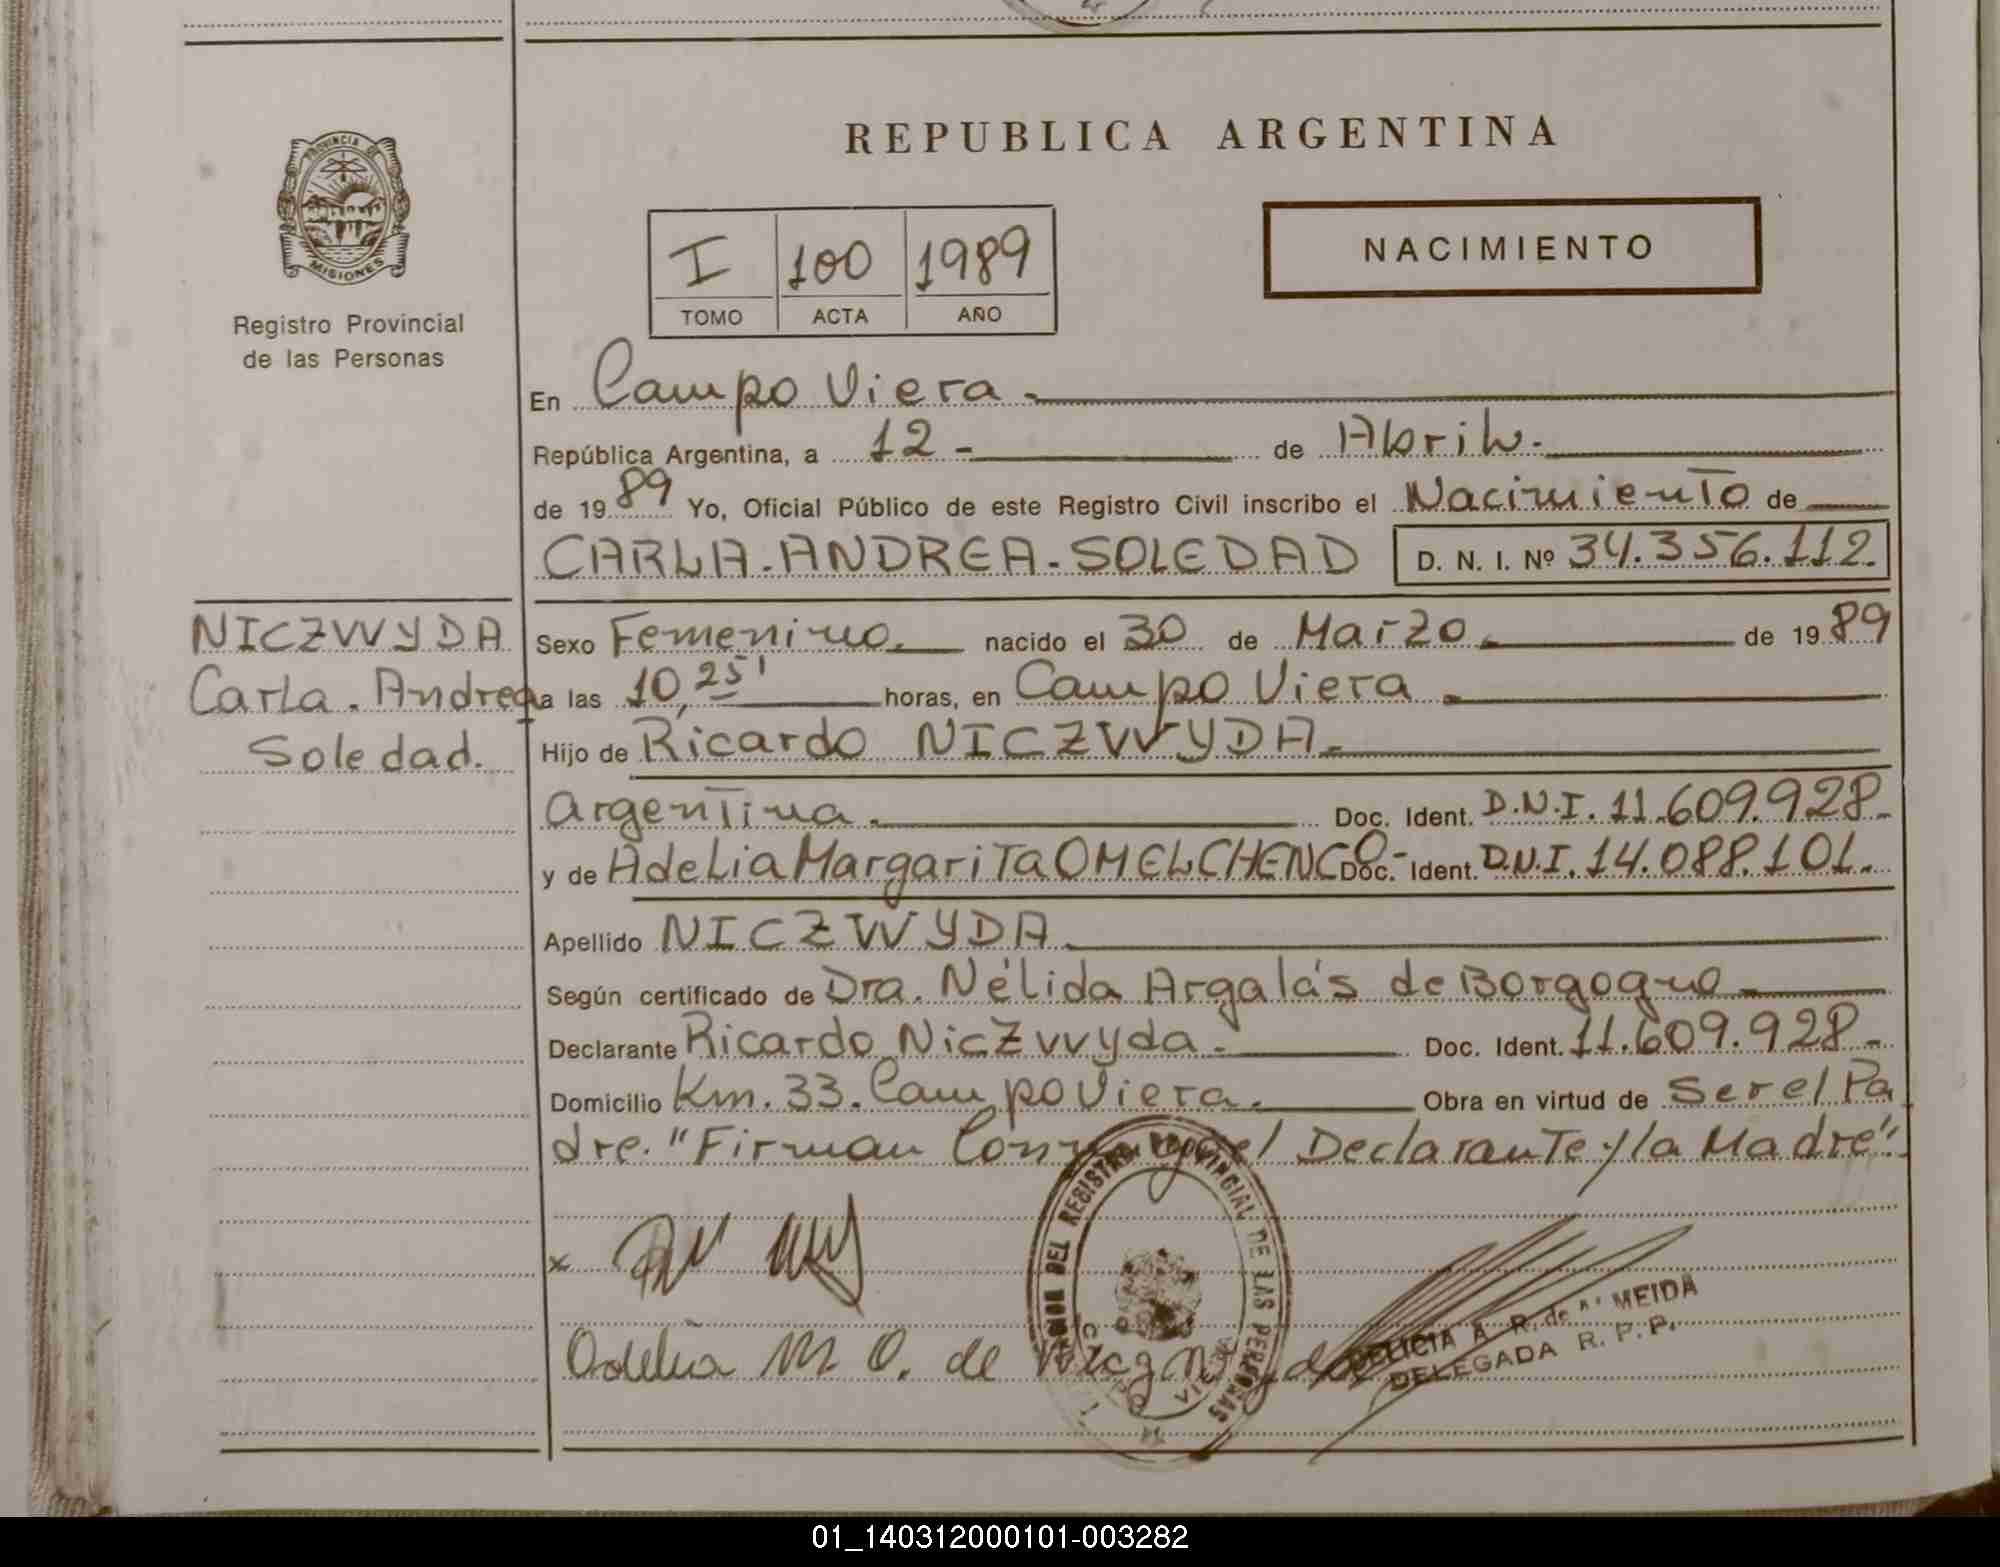 PROVINCIA DE
MISIONES
Registro Provincial
de las Personas
NICZWYDA
Carla. Andrea
Soledad.
REPUBLICA ARGENTINA
I 100 1989
TOMO ACTA AÑO
NACIMIENTO
En Campo Viera
República Argentina, a 12 de Abril.
de 1989 Yo, Oficial Público de este Registro Civil inscribo el Nacimiento de
CARLA. ANDREA. SOLEDAD D. N. I. Nº 34.356.112.
Sexo Femenino. nacido el 30 de Marzo. de 1989
a las 10,25' horas, en Campo Viera.
Hijo de Ricardo NICZWYDA.
Argentina. Doc. Ident. D.N.I. 11.609.928.
y de Adelia Margarita OMELCHENCO Doc. Ident. D.N.I. 14.088.101.
Apellido NICZWYDA
Según certificado de Dra. Nélida Argalás de Borgogno
Declarante Ricardo Niczwyda. Doc. Ident. 11.609.928.
Domicilio Km. 33. Campo Viera. Obra en virtud de Ser el Pa
dre. "Firman Conmigo el Declarante y la Madre".
x
Adelia M. O. de Niczwyda
DEL REGISTRO PROVINCIAL DE LAS PERSONAS
DELICIA A. R. de ALMEIDA
DELEGADA R. P. P.
01_140312000101-003282